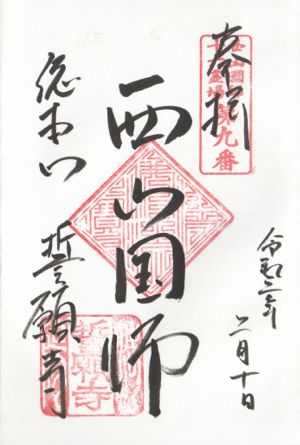 奉拝
第九番
西山国師
総本山 誓願寺
令和二年
二月十日
誓願寺